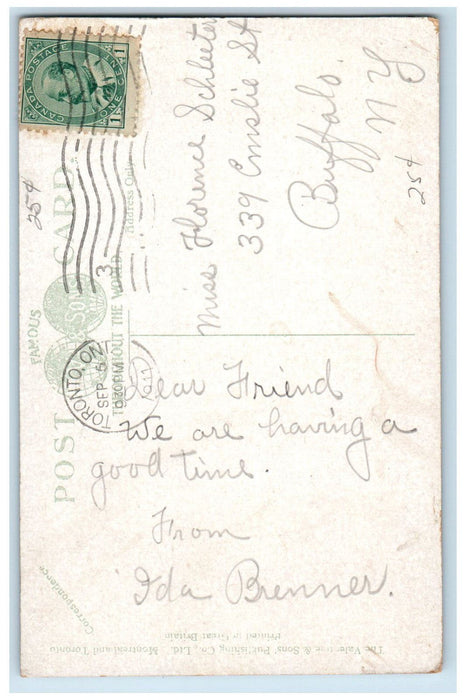 CANADA POSTAGE
1 ONE CENT 1
POST CARD.
FAMOUS
THROUGHOUT THE WORLD
Address Only
Correspondence
TORONTO, ONT
SEP 5
630PM
1911
3
25¢
25¢
Miss Florence Schleeter
339 Emslie St
Buffalo.
N Y
Dear Friend
We are having a
good time.
From
Ida Brenner.
The Valentine & Sons Publishing Co., Ltd. Montreal and Toronto
Printed in Great Britain